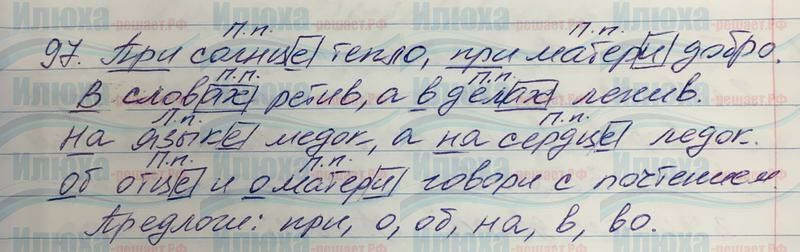 П.п. П.п.
97. При солнце тепло, при матери добро.
П.п. П.п.
В словах ретив, а в делах ленив.
П.п. П.п.
На языке медок, а на сердце ледок.
П.п. П.п.
Об отце и о матери говори с почтением.
Предлоги: при, о, об, на, в, во.
Илюха
-решает.РФ